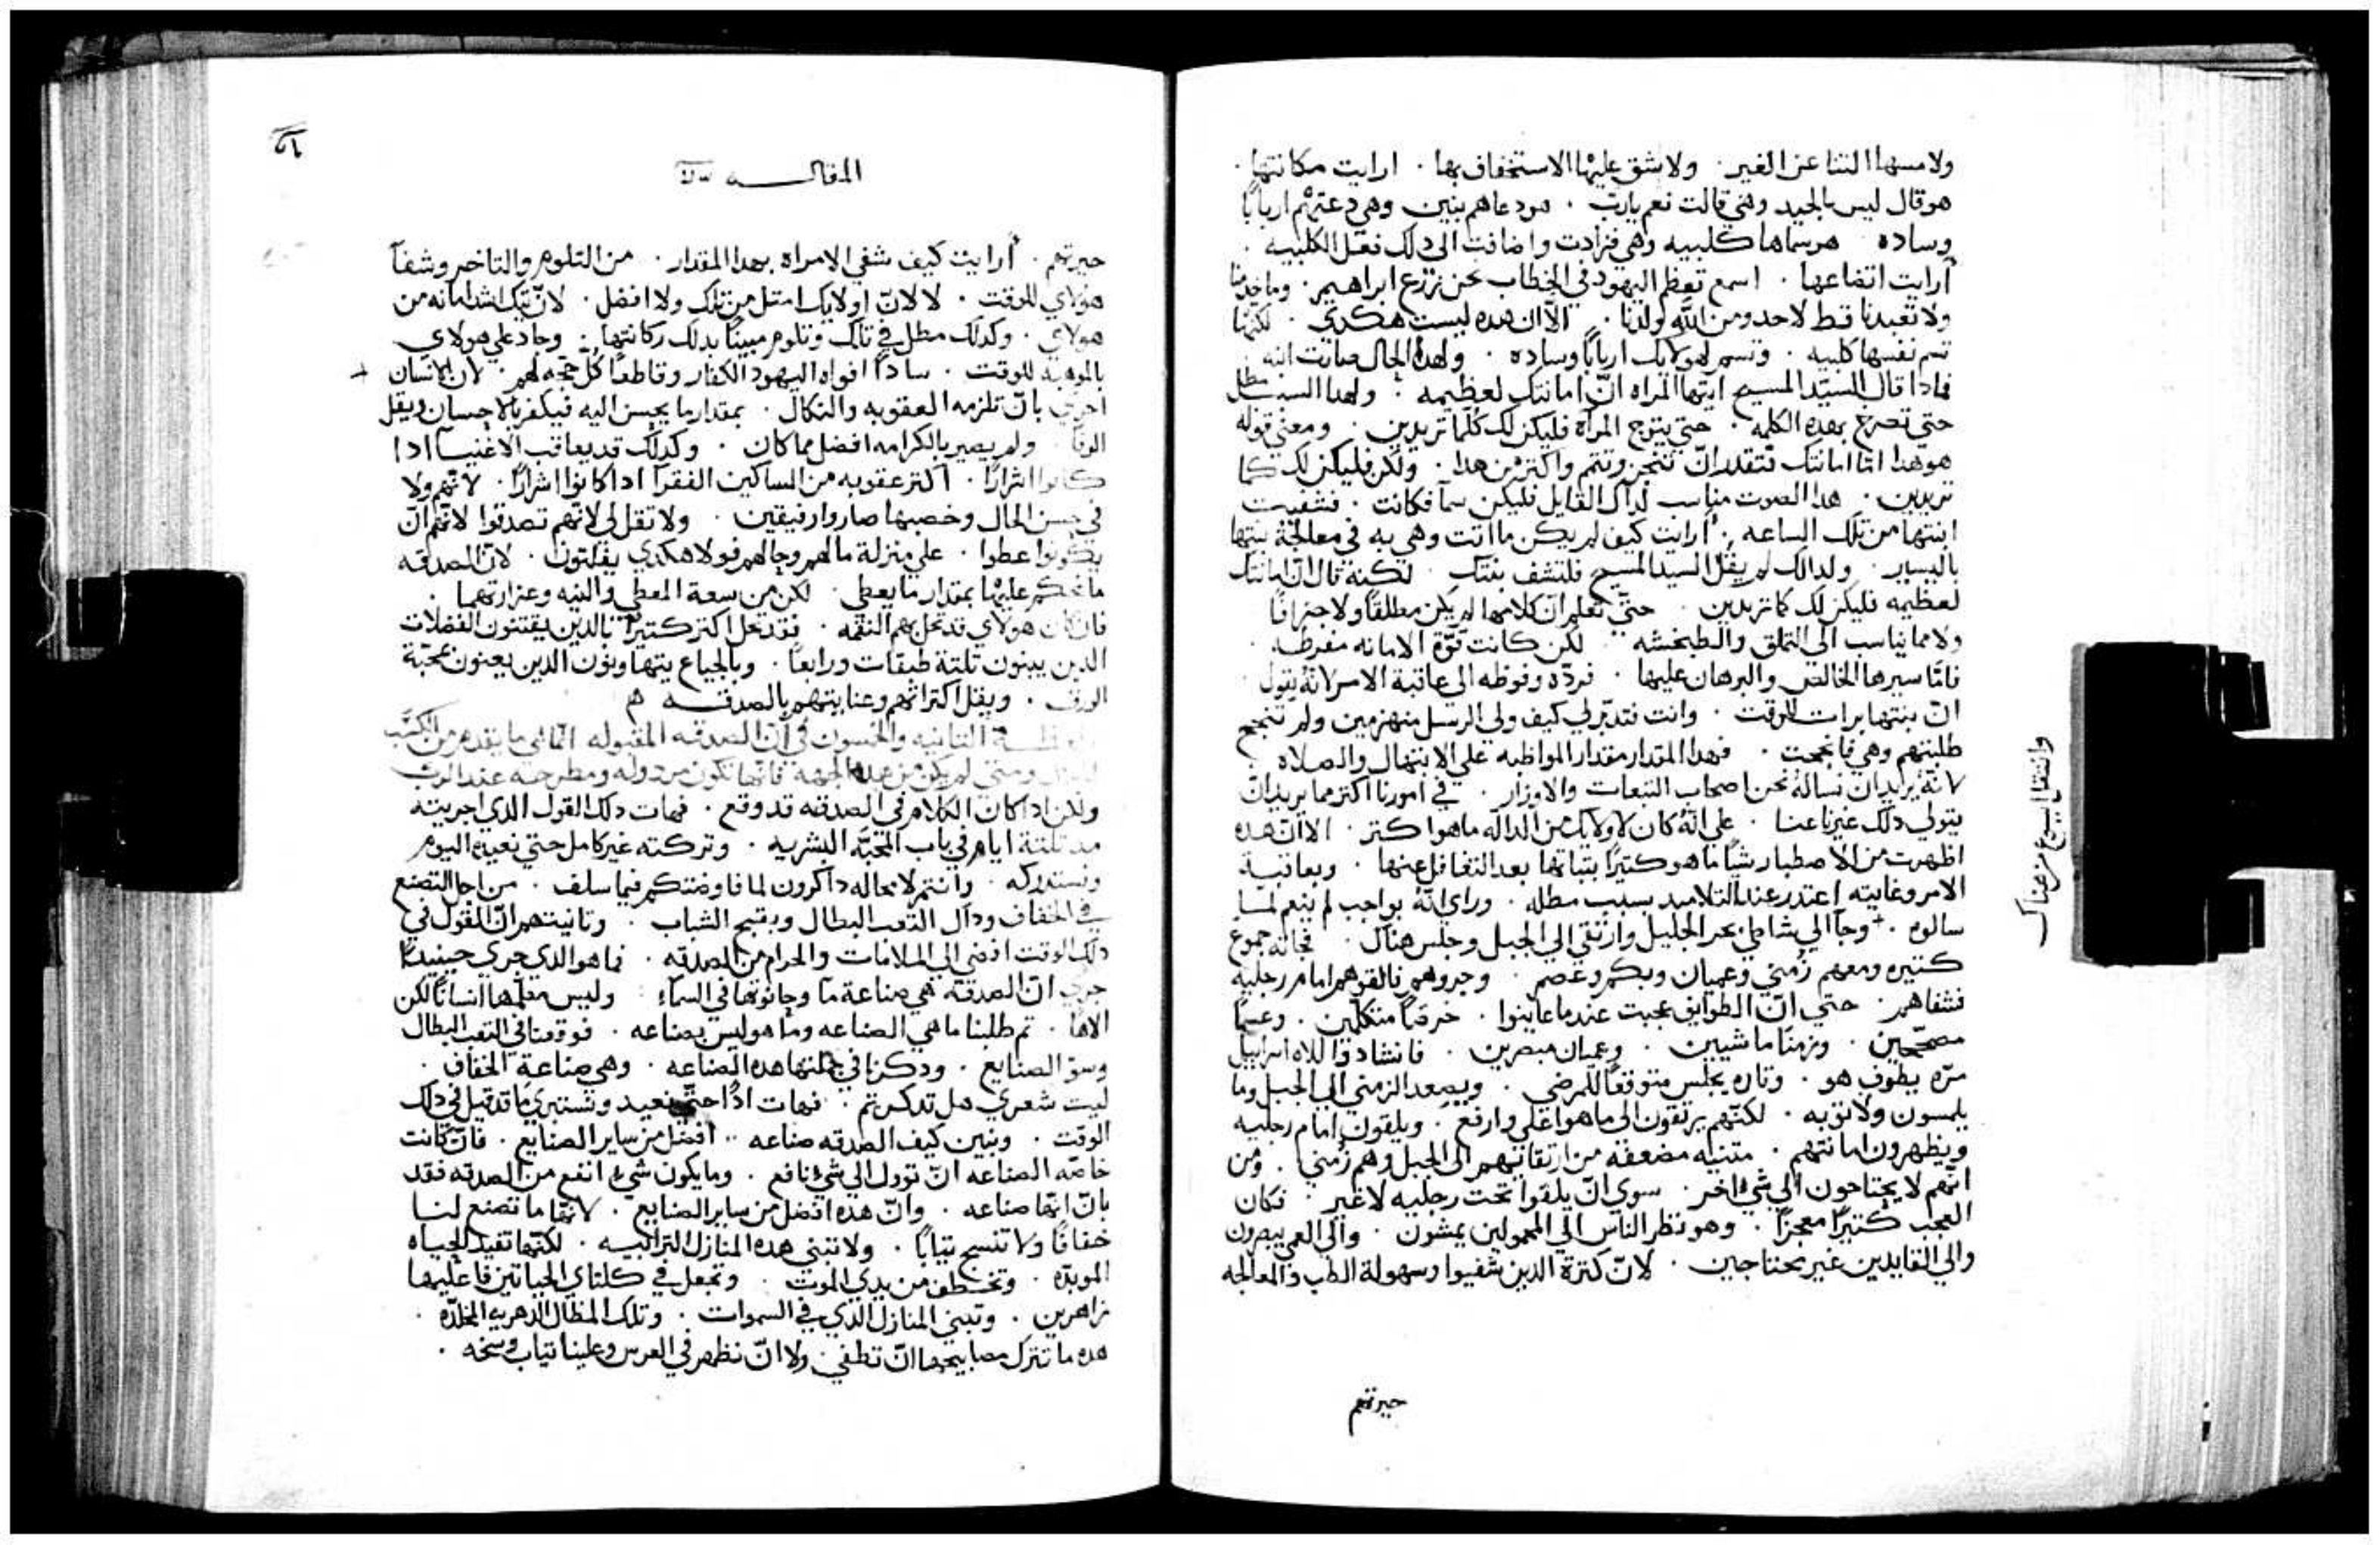 ولا مسها الثنا عن الغير . ولا شق عليها الاستخفاف بها . ارايت مكانتها .
هو قال ليس بالجيد وهي قالت نعم يارب . هو دعاهم بنين وهي دعتهم اربابًا
وساده هو سماها كلبيه وهي فزادت واضافت الى دلك فعل الكلبيه .
أرايت اتضاعها . اسمع تعظم اليهود في الخطاب نحن زرع ابراهيم . وما خدمنا
ولا تعبدنا قط لاحد ومن اللَّه ولدنا . الّا ان هده ليست هكدي . لكنّها
تسم نفسها كلبيه . وتسمي هولايك اربابًا وساده . ولهدا الحال صارت ابنه
فمادا قال السيّد المسيح ايتها المراه انّ امانتك لعظيمه . ولهدا السبب مطل
حتي تصرخ بهده الكلمه . حتي يتوج المراه فليكن لك كلّما تريدين . ومعني قوله
هو هدا امّا امانتك فتقدر انّ تنجز وتتم واكتر من هدا . ولكن فليكن لك كما
تريدين . هدا الصوت مناسب لداك القايل فليكن سمآ فكانت . فشفيت
ابنتها من تلك الساعه . أرايت كيف لم يكن ما اتت وهي به في معالجة بنتها
باليسير . ولدالك لم يقل السيد المسيح فلتشف بنتك . لكنه قال انّ امانتك
لعظيمه فليكن لك كما تريدين . حتّي تعلم انّ كلامها لم يكن مطلقًا ولا جزافًا
ولا مما يناسب الى التملق والطبخشه . لكن كانت قوّة الامانه مفرطه .
فامّا سيرها الخالص والبرهان عليها . فردّه وفوظه الي عاقبة الامر لانه يقول .
انّ بنتها برات للوقت . وانت فتدبّر لي كيف ولي الرسل منهزمين ولم تنجح
طلبتهم وهي فانجحت . فهدا المقدار مقدار المواظبه علي الابتهال والصلاه
لانّه يريد ان نساله نحن اصحاب التبعات والاوزار . في امورنا اكتر مما يريد انّ
يتولي دلك غيرنا عنا . علي انّه كان لاولايك من الدالّه ما هو اكتر . الا انّ هده
اظهرت من الاصطبار شيًا ما هو كتيرًا بتباتها بعد التغافل عنها . وبعاقبة
الامر وغايته اعتدر عند التلاميد بسبب مطله . وراي انّه بواجب لم ينعم لمّا
سالوه . + وجا الي شاطي بحر الجليل وارتقي الي الجبل وجلس هناك . فجاته جموع
كتيره ومعهم زُمني وعميان وبكم وعصم . وجروهم فالقوهم امام رجليه
فشفاهم . حتي انّ الطوايف عجبت عندما عاينوا . خرصًا متكلّمين . وعسمًا
مصحّحين . وزمنًا ماشيين . وعميان مبصرين . فانشادوا للاه اسراييل
مرّه يطوف هو . وتاره يجلس متوقعًا للمرضي . ويصعد الزمني الي الجبل وما
يلمسون ولا توبه . لكنّهم يرتقون الى ما هو اعلي وارفع . ويلقون امام رجليه
ويظهرون امانتهم . متنيه مضعفه من ارتقايهم الى الجبل وهم زُمني . ومن
انّهم لا يحتاجون الي شيء اخر . سوي انّ يلقوا تحت رجليه لا غير . فكان
العجب كتيرًا معجزًا . وهو نظر الناس الي المحمولين يمشون . والي العمي يبصرون
والي القايدين غير محتاجين . لانّ كترة الدين شفيوا وسهولة الطب والمعالجه
حيرتهم
وانتقل ايسوع من هناك
المقاله
حيرتهم . أرايت كيف شفي الامراه بهدا المقدار . من التلوم والتاخير وشفا
هولاي للوقت . لا لانّ اولايك امتل من تلك ولا افضل . لانّ تيك اشد امانه من
هولاي . وكدلك مطل في تلك وتلوم مبينًا بدلك ركانتها . وجاد علي هولاي
بالموهبه للوقت . سادًا افواه اليهود الكفار وقاطعًا كل حجه لهم . لان الانسان +
احري بانّ تلزمه العقوبه والنكال . بمقدار ما يحسن اليه فيكفر بالاحسان ويقل
الوفا . ولم يصير بالكرامه افضل مما كان . وكدلك قد يعاقب الاغنيآ ادا
كانوا اشرارًا . اكتر عقوبه من المساكين الفقرآ ادا كانوا اشرارًا . لانّهم ولا
في حسن الحال وخصبها صاروا رفيقين . ولا تقل لي لانّهم تصدقوا لانّهم انّ
يكونوا عطوا . علي منزلة ما لهم وجالهم فولا هكدي يفلتون . لانّ الصدقه
ما نحكم عليها بمقدار ما يعطي . لكن من سعة المعطي والنيه وغزارتهما .
فان كان هولاي قد تحل بهم النقمه . فقد تحل اكتر كتيرًا بالدين يقتنون الفضلات
الدين يبنون تلتة طبقات ورابعًا . وبالجياع يتهاونون الدين يعنون بمحبّة
الورق . ويقل اكتراثهم وعنايتهم بالصدقه
التانيه والخمسون في انّ الصدقه المقبوله انّما هي ما يقدم من الكسَب
ومتي لم يكن من هده الجهه فانّها تكون مردوله ومطرحه عند الرب
ولكن ادا كان الكلام في الصدقه قد وقع . فهات دلك القول الدي اجريته
مد تلتة ايام في باب المحبّه البشريه . وتركته غير كامل حتي نعيده اليوم
ونستدركه . وانتم لا محاله داكرون لما فاوضتكم فيما سلف . من اجل التصنع
في الخفاف وداك التعب البطال وبقبح الشباب . وتانيتهم انّ القول في
دلك الوقت افضي الي الملامات والحرام من الصدقه . فما هو الدي جري حينيدٍ
جري انّ الصدقه هي صناعة مّا وحانوتها في السمآء . وليس معلّمها انسانًا لكن
الاهًا . تم طلبنا ما هي الصناعه وما هو ليس بصناعه . فوقعنا في التعب البطال
وسوّ الصنايع . ودكرنا في جملتها هده الصناعه . وهي صناعة الخفاف .
ليت شعري هل تدكرتم . فهات ادًا حتّي نعيد ونستبري ما قد قيل في دلك
الوقت . ونبين كيف الصدقه صناعه .. افضل من ساير الصنايع . فانّ كانت
خاصّه الصناعه انّ تودل الي شيء نافع . وما يكون شيء انفع من الصدقه فقد
بانّ انّها صناعه . وانّ هده افضل من ساير الصنايع . لانّها ما تصنع لنا
خفافًا ولا تنسج تيابًا . ولا تبني هده المنازل الترابيه . لكنّها تفيد الحياه
الموبدّه . وتخطف من يدي الموت . وتجعل في كلتاي الحياتين فاعليها
زاهرين . وتبني المنازل الدي في السموات . وتلك المظال الدهريه المخلدّه .
هده ما تترك مصابيحها انّ تطفي . ولا انّ نظهر في العرس وعلينا تياب وسخه .